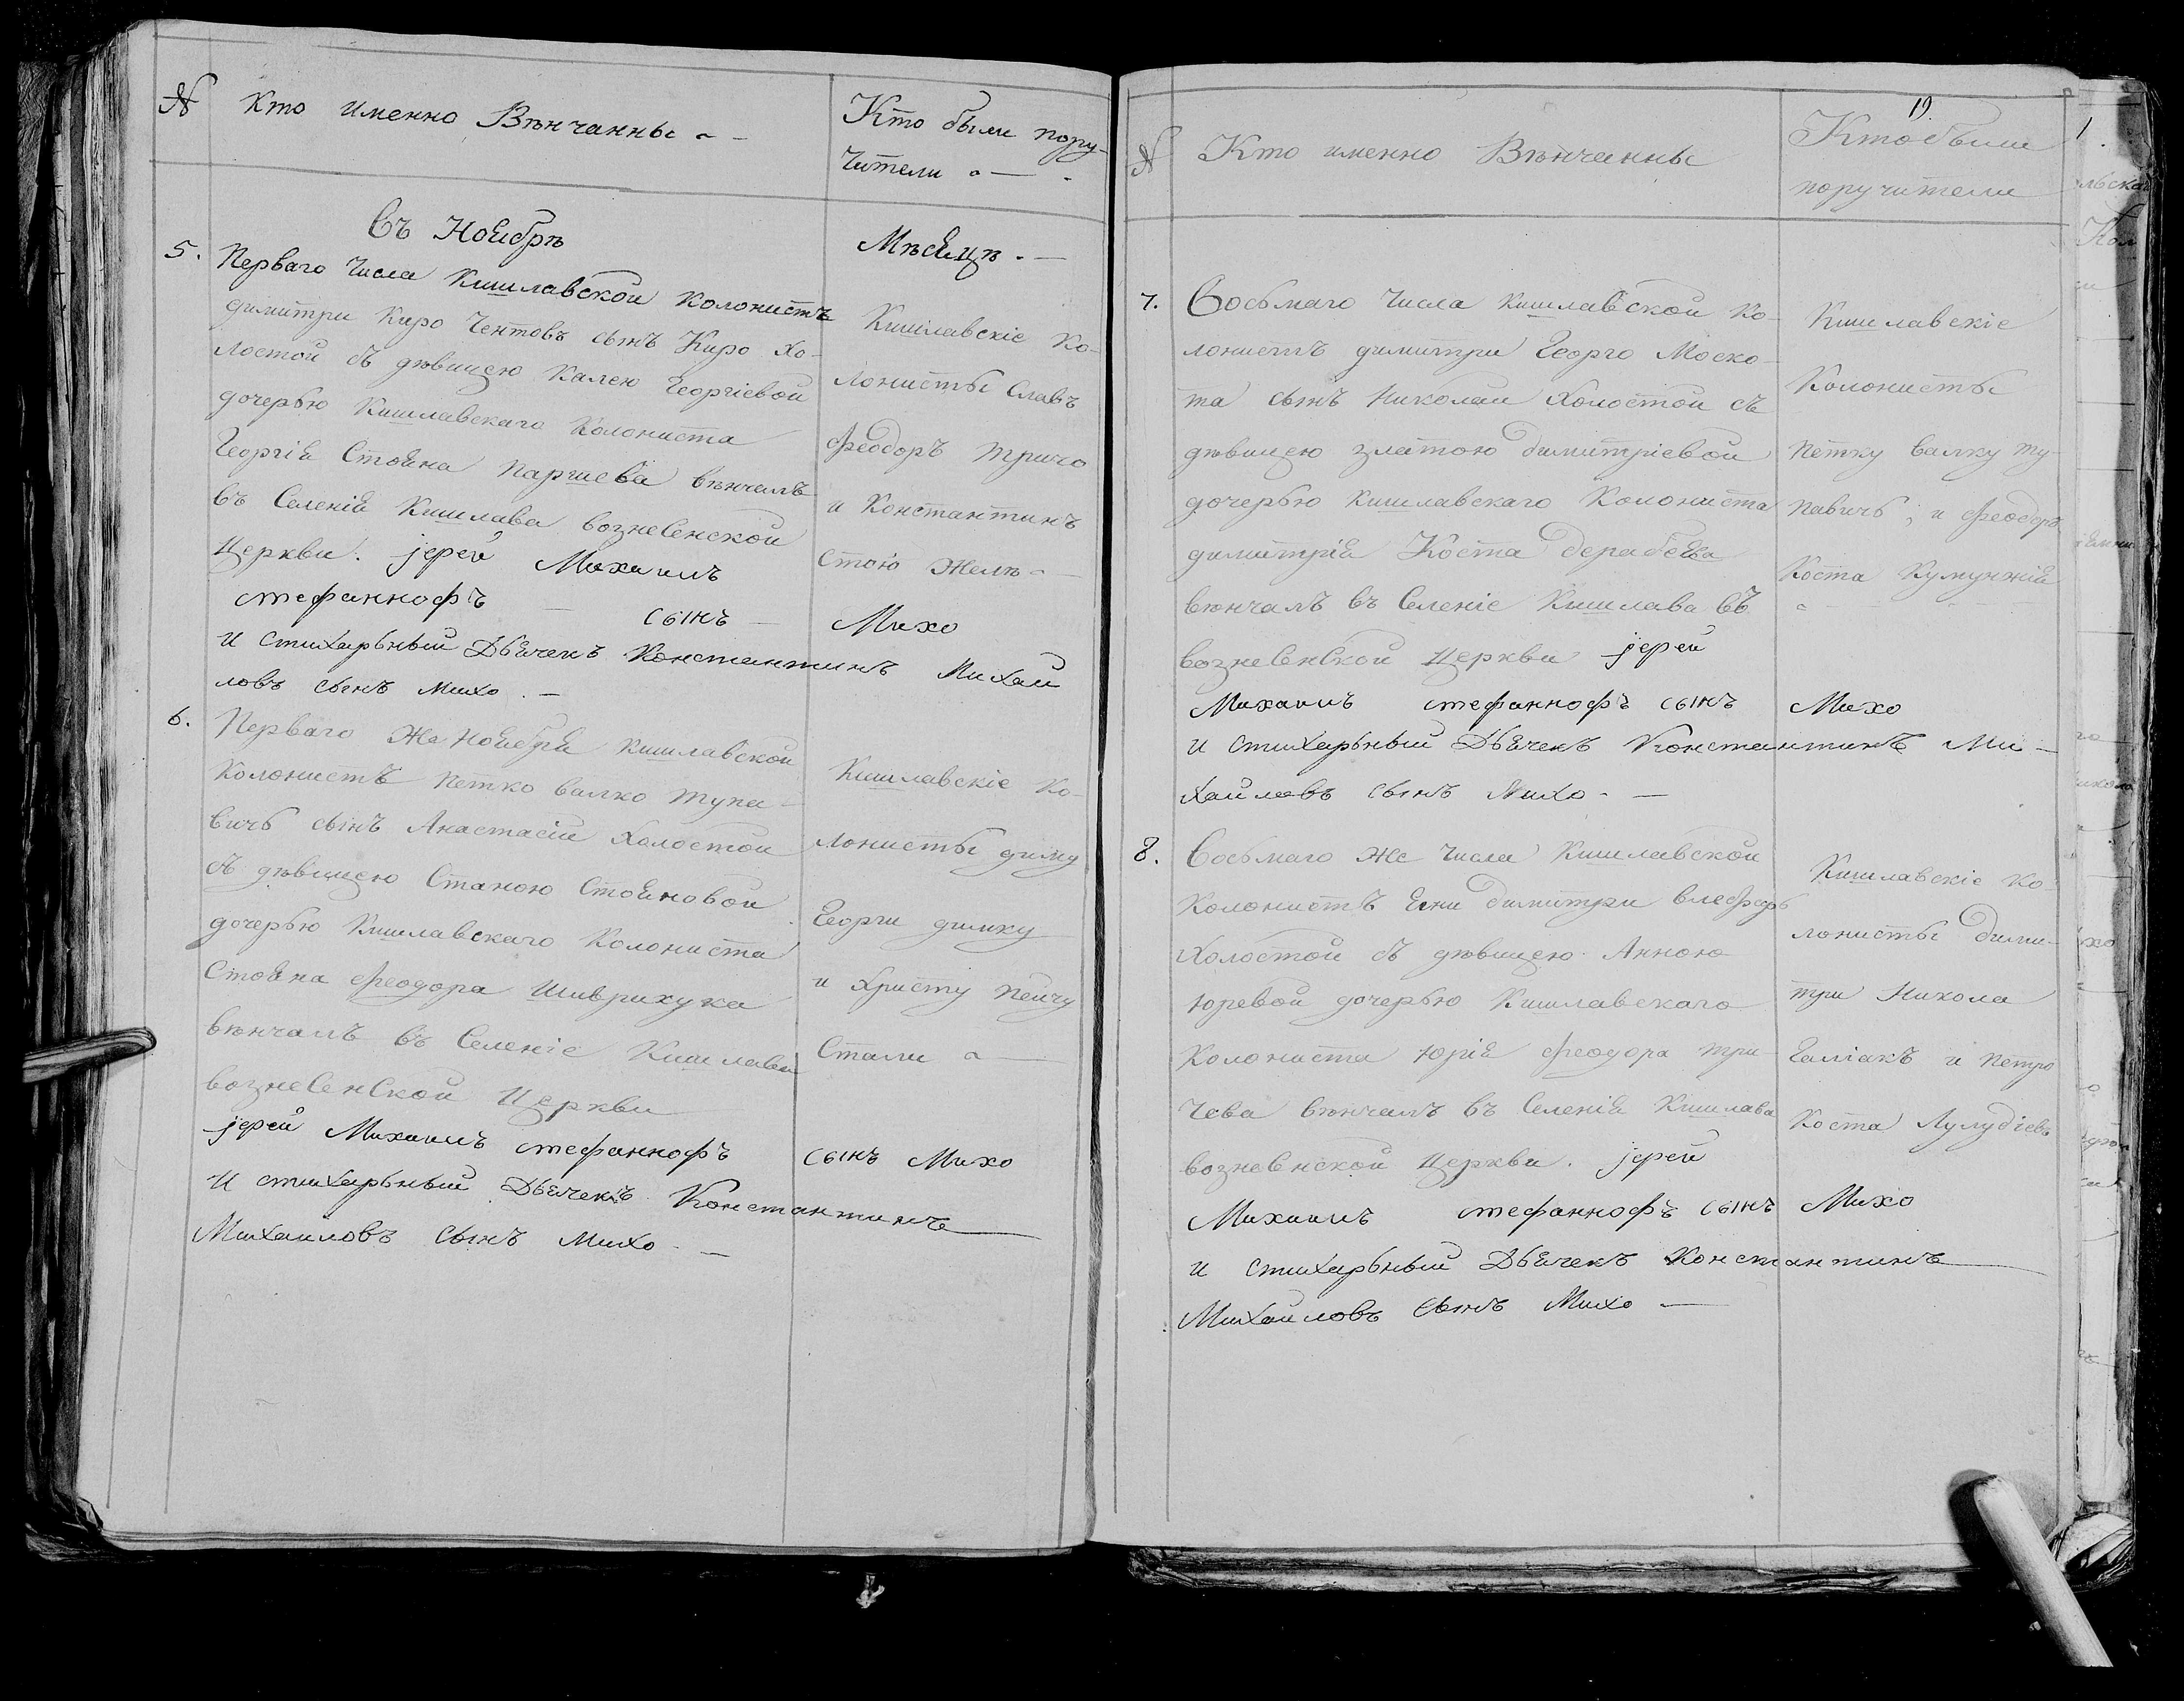 № Кто именно Вѣнчанны
Кто были пору-
чители
Въ Ноябрѣ
Мѣсяцѣ
5. Перваго Числа Кишлавской колонистъ
димитри Киро Чентовъ сынъ Киро хо-
лостой съ дѣвицею Калею Георгіевой
дочерью Кишлавскаго Колониста
Георгія Стояна Паршева вѣнчалъ
въ Селенія Кишлава вознесенской
Церкви. јерей Михаилъ
стефаннофъ — сынъ — Михо
и стихарьный Дьячекъ Константинъ Михай
ловъ сынъ михо. —
Кишлавскіе Ко-
лонисты Славъ
феодоръ тричо
и Константинъ
Стою Желѣ
6. Перваго Же Ноября кишлавской
Колонистъ Петко валко тупа-
вичь сынъ Анастасіи Холостой
съ дѣвицею Станою Стояновой
дочерью Кишлавскаго Колониста
Стояна феодора Шиврихука
вѣнчалъ въ Селеніе Кишлава
вознесенской Церкви
јерей Михаилъ стефаннофъ сынъ Михо
И стихарьный Дьячекъ Константинъ
Михаиловъ сынъ михо. —
Кишлавскіе Ко-
лонисты диму
Георги димку
и Христу Пейчу
Стали
19.
№ Кто именно Вѣнчанны
Кто были
поручители
7. Восьмаго Числа кишлавской Ко-
лонистъ димитри Георго Моско-
та сынъ Николай Холостой съ
дѣвицею златою димитріевой
дочерью кишлавскаго Колониста
димитрія Коста дерабева
вѣнчалъ въ Селеніе Кишлава въ
вознесенской Церкви јерей
Михаилъ стефаннофъ сынъ Михо
и стихарьный Дьячекъ Константинъ Ми-
хайловъ сынъ Михо. —
Кишлавскіе
Колонисты
Петку валку ту-
павичь, и феодоръ
Коста Кумунжія
8. Восьмаго Же Числа Кишлавской
Колонистъ Яни димитри
Холостой съ дѣвицею Анною
юревой дочерью Кишлавскаго
Колониста юрія феодора три-
чева вѣнчалъ въ Селенія Кишлава
вознесенской Церкви. јерей
Михаилъ стефаннофъ сынъ Михо
и стихарьный Дьячекъ Константинъ
Михайловъ сынъ Михо —
Кишлавскіе Ко-
лонисты дими-
три Никола
Галіакъ и Петро
Коста Лулудіевъ